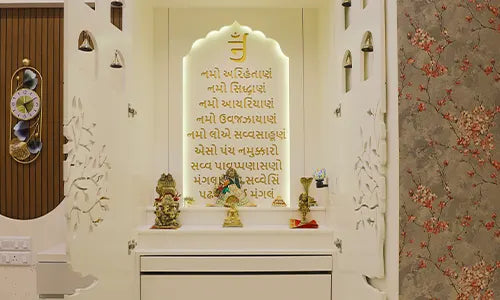 નમો અરિહંતાણં
નમો સિદ્ધાણં
નમો આયરિયાણં
નમો ઉવજઝાયાણં
નમો લોએ સવ્વસાહૂણં
એસો પંચ નમુક્કારો
સવ્વ પાવપ્પણાસણો
સવ્વેસિ
મંગલં